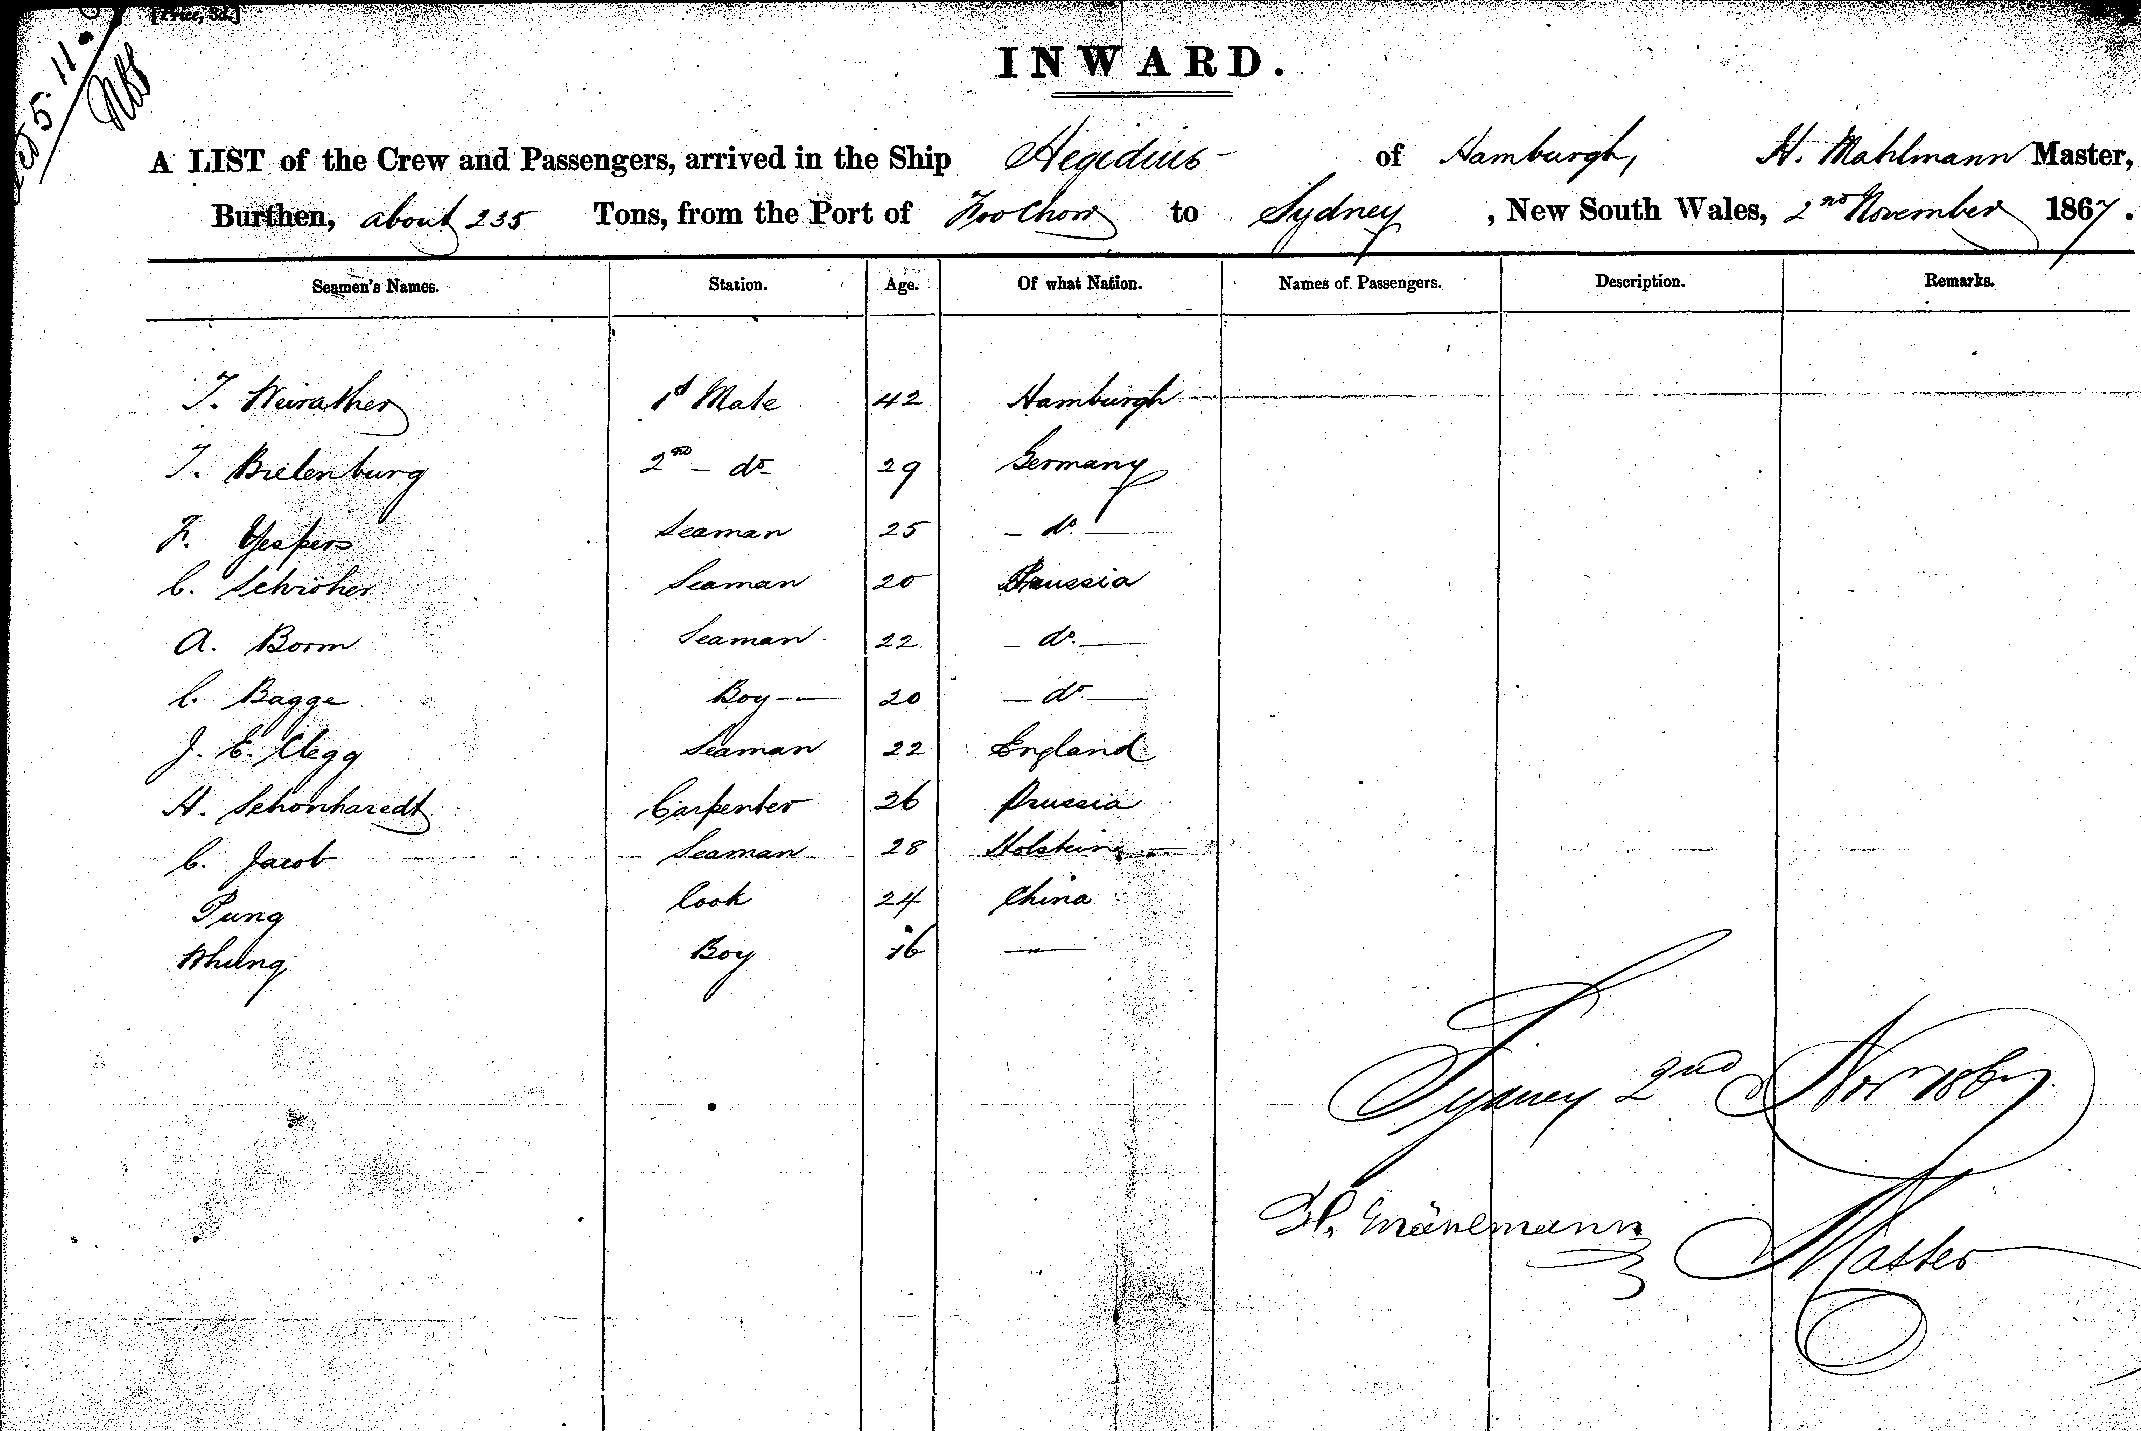 [Price, 3d.]
INWARD.
A LIST of the Crew and Passengers, arrived in the Ship Aegidius of Hamburgh, H. Mahlmann Master,
Burthen, about 235 Tons, from the Port of Foo Chow to Sydney, New South Wales, 2nd November 1867.
Seamen's Names. Station. Age. Of what Nation. Names of Passengers. Description. Remarks.
T. Weirather 1st Mate 42 Hamburgh
T. Bielenburg 2nd - do 29 Germany
F. Yespers Seaman 25 - do -
C. Schroher Seaman 20 Prussia
A. Borm Seaman 22 - do. -
C. Bagge Boy - 20 - do -
J. E. Clegg Seaman 22 England
H. Schonharedt Carpenter 26 Prussia
C. Jacob Seaman 28 Holstein
Pung Cook 24 China
Boy 16 -
Sydney 2nd Nov 1867
H. Mählmann Master